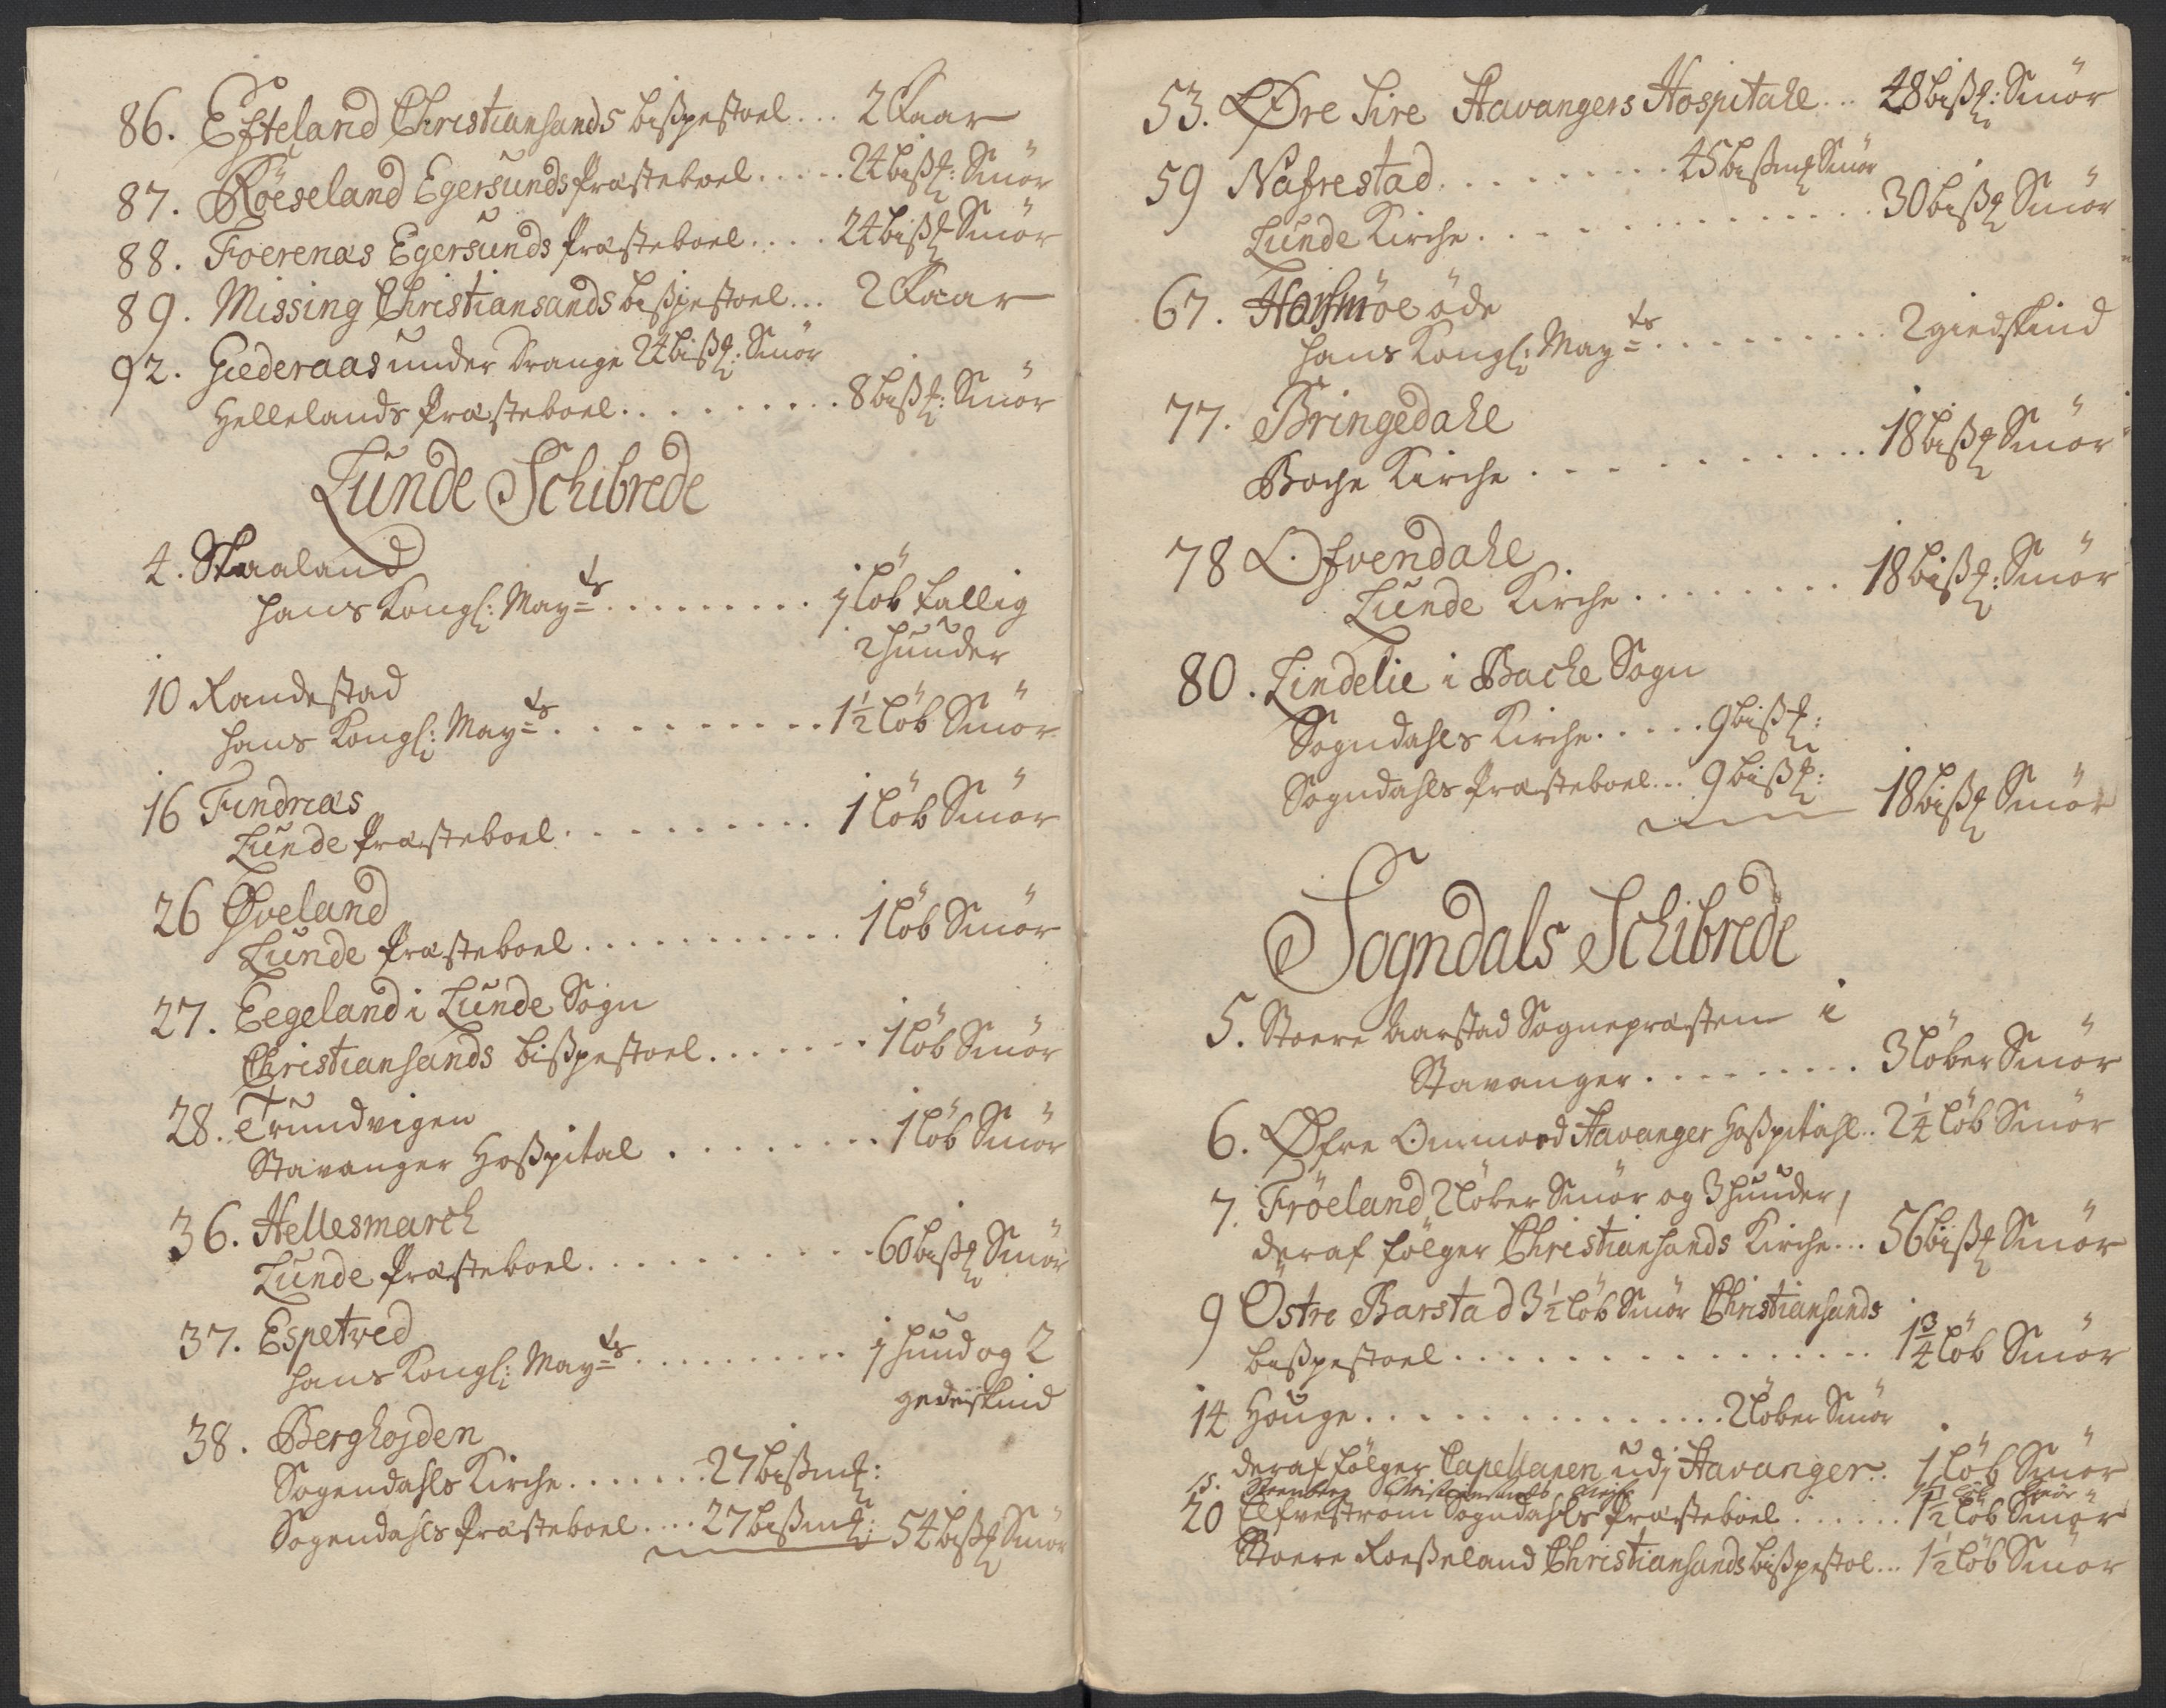 86. Efteland Christiansands bißpestoel... 2 Faar
87. Röeseland Egersunds Præsteboel..... 24 biß℔: Smör
88. Foerenæs Egersunds Præsteboel.... 24 biß℔ Smör
89. Missing Christiansands bißpestoel... 2 Faar
92. Giederaas under Drange 24 biß℔: Smör
Hellelands Præsteboel.......... 8 biß℔: Smör
Lunde Schibrede
4. Skaaland
Hans Kongl: Mayts......... 1 löb tallig
2 huuder
10 Randestad
Hans Kongl: Mayts......... 1½ löb Smör
16 Fundnæs
Lunde Præsteboel.......... 1 löb Smör
26 Øveland
Lunde Præsteboel........... 1 löb Smör
27. Eegeland i Lunde Sogn
Christiansands bißpestoel....... 1 löb Smör
28. Trundvigen
Stavanger Hoßpital........ 1 löb Smör
36. Hellesmarch
Lunde Præsteboel.......... 60 biß℔ Smör
37. Espetved
Hans Kongl: Mayts.......... 1 huud og 2
gedeskind
38. Berghojden
Sogendahls Kirche....... 27 bißm℔:
Sogendahls Præsteboel.... 27 bißm℔: 54 biß℔ Smör
53. Øre Sire Stavangers Hospitahl... 48 biß℔: Smör
59 Nafrestad......... 45 bißm℔ Smör
Lunde Kirche.............. 30 biß℔ Smör
67. öde
Hans Kongl: Mayts.......... 2 giedskind
77. Bringedahl
Bache Kirche........... 18 biß℔ Smör
78 Ofvendahl
Lunde Kirche......... 18 biß℔: Smör
80. Lindelie i Bache Sogn
Sogndahls Kirche..... 9 biß℔:
Sogndahls Præsteboel... 9 biß℔: 18 biß℔ Smör
Sogndals Schibrede
5. Stoere Aarstad Sognepræsten i
Stavanger.......... 3 löber Smör
6. Øfre Ommord Stavanger Hoßpitahl.. 2¼ löb Smör
7. Fröeland 2 löber Smör og 3 huuder,
deraf fölger Christiansands Kirche... 56 biß℔ Smör
9 Östre Barstad 3½ löb Smör Christiansands
bißpestoel................. 1¾ löb Smör
14 Houge............... 2 löber Smör
deraf fölger Capellanen udj Stavanger.. 1 löb Smör
15. Steenberg Christiansands löb Smör
20 Elfvestrøm Sogndahls Præsteboel...... 1½ löb Smör
Stoere Roeßeland Christiansands bißpestol... 1½ löb Smör